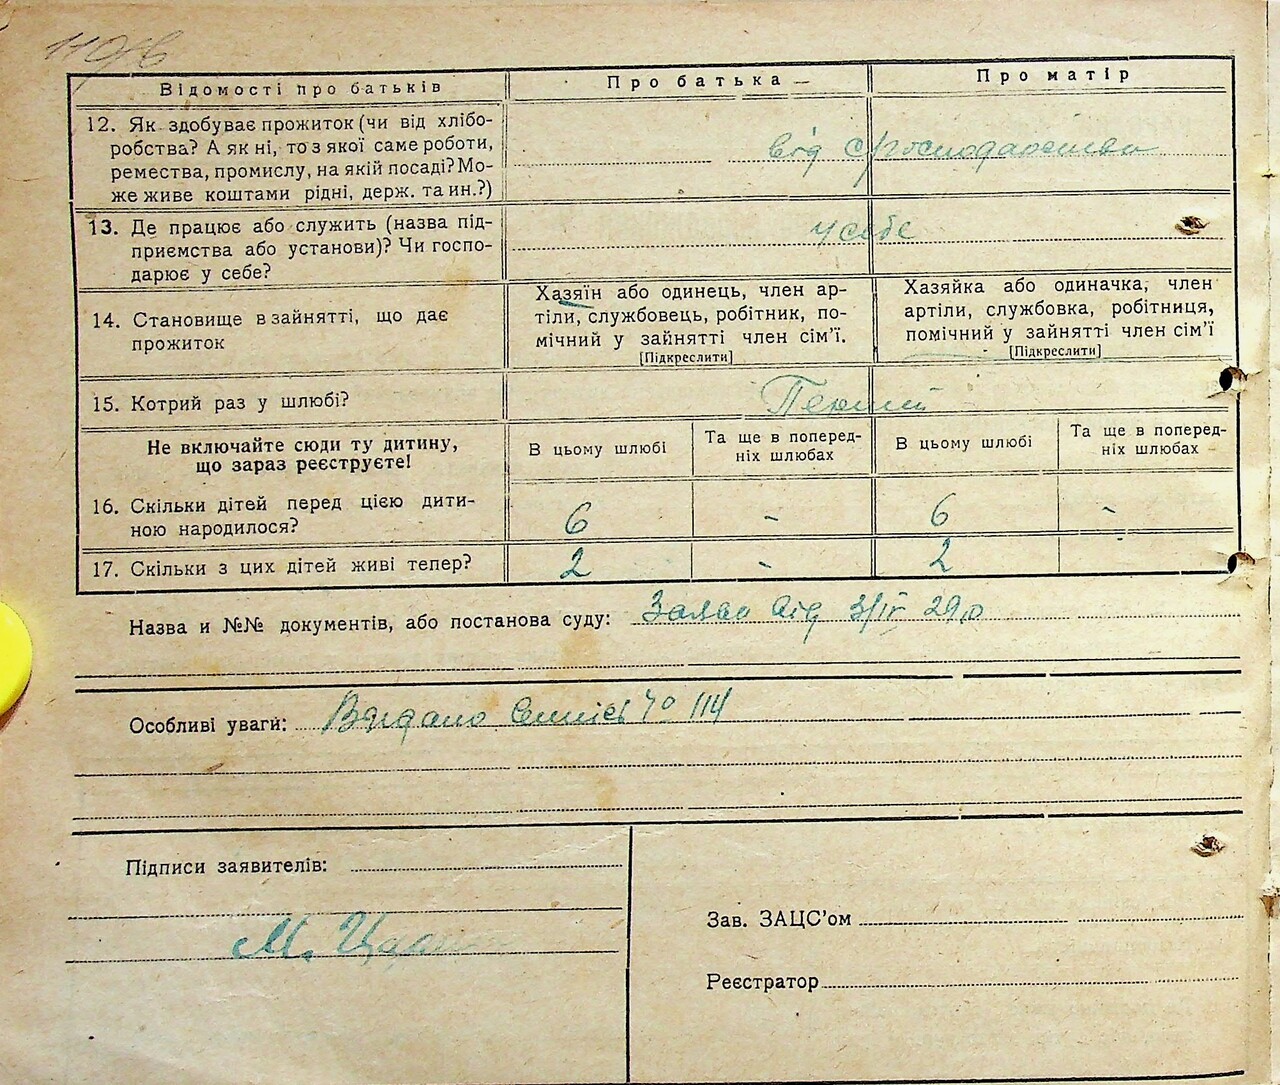 Відомості про батьків
Про батька —
Про матір
12. Як здобуває прожиток (чи від хлібо-
робства? А як ні, то з якої саме роботи,
ремества, промислу, на якій посаді? Мо-
же живе коштами рідні, держ. та ин.?)
від
13. Де працює або служить (назва під-
приємства або установи)? Чи госпо-
дарює у себе?
у себе
14. Становище в зайнятті, що дає
прожиток
Хазяїн або одинець, член ар-
тіли, службовець, робітник, по-
мічний у зайнятті член сім’ї.
[Підкреслити]
Хазяйка або одиначка, член
артіли, службовка, робітниця,
помічний у зайнятті член сім’ї
[Підкреслити]
15. Котрий раз у шлюбі?
Не включайте сюди ту дитину,
що зараз реєструєте!
В цьому шлюбі
Та ще в поперед-
ніх шлюбах
В цьому шлюбі
Та ще в поперед-
ніх шлюбах
16. Скільки дітей перед цією дити-
ною народилося?
6 - 6 -
17. Скільки з цих дітей живі тепер?
2 - 2
Назва и №№ документів, або постанова суду: від 3/IV 29 р
Особливі уваги: № 114
Підписи заявителів:
М.
Зав. ЗАЦС’ом
Реєстратор